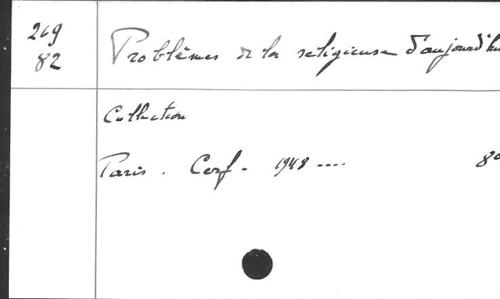 269
82
Problèmes de la religieuse d'aujourd'hu
Collection
Paris. Cerf. 1948 ....
8°